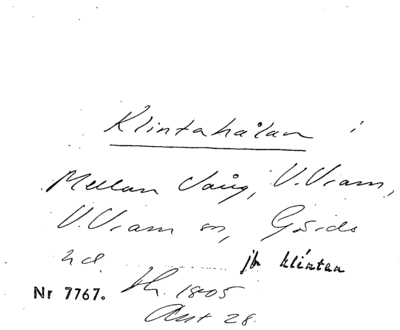 Klintahålan i
Mellan Vång, V. Vram,
V. Vram sn, Gärds
hd.
jfr klintan
Nr 7767. Sk. 1805
Akt 28.